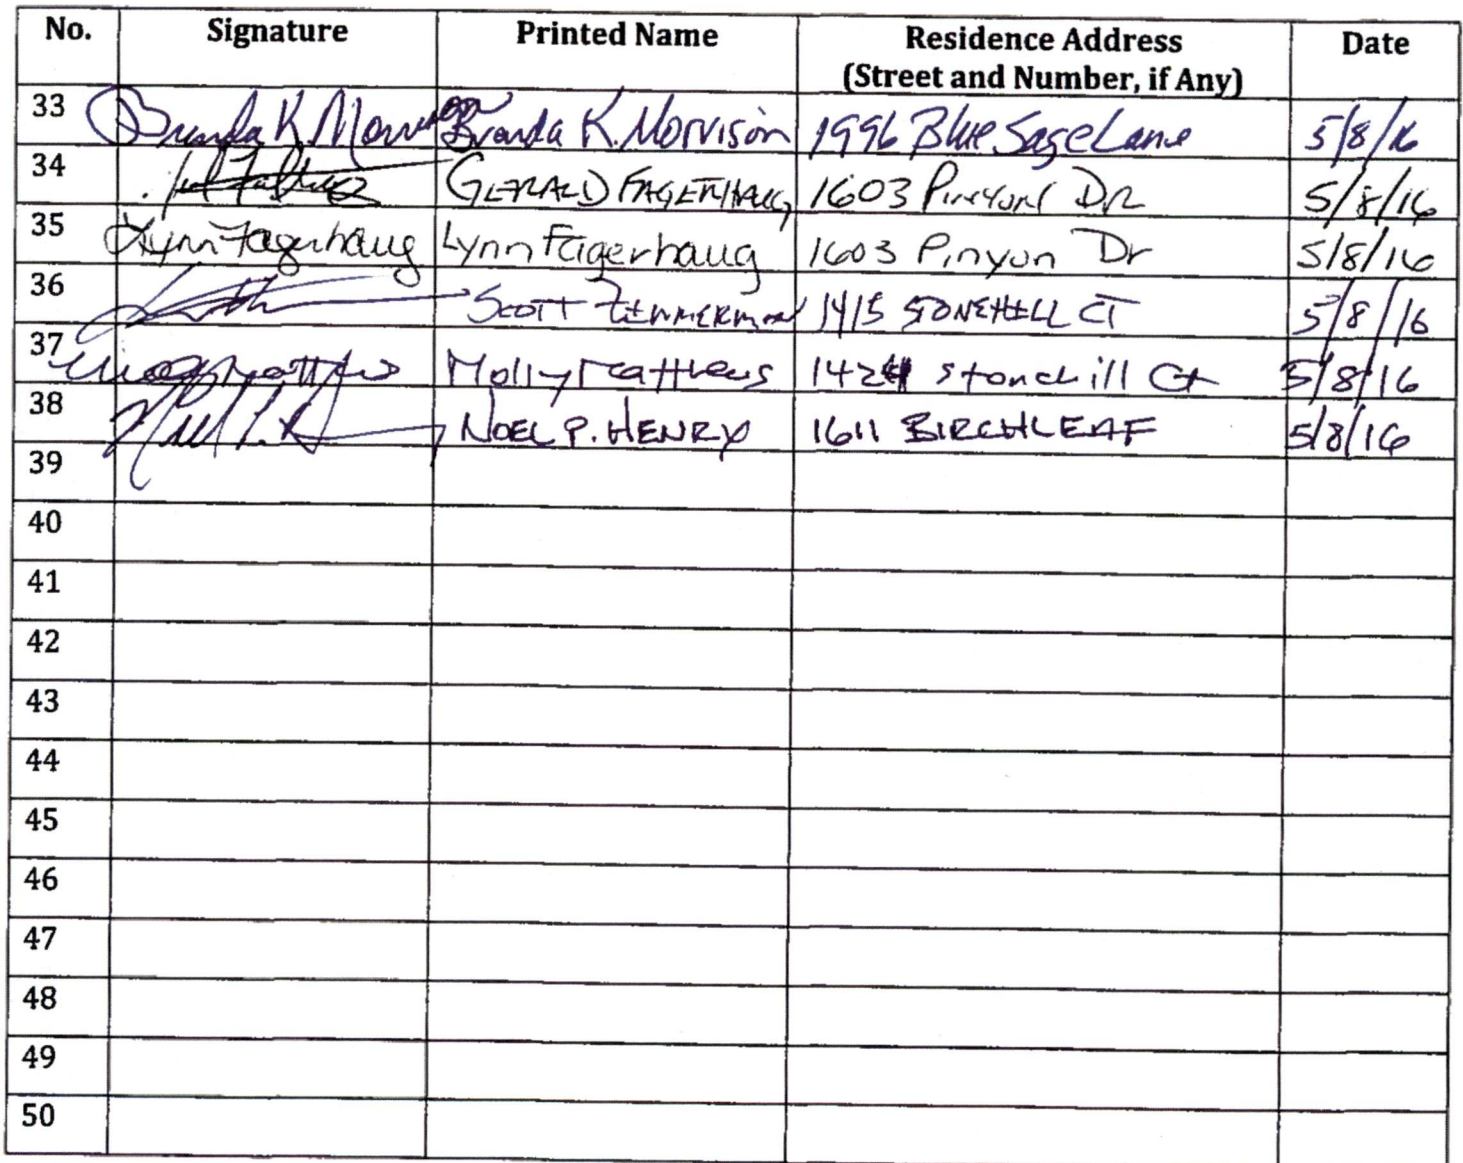 No. Signature Printed Name Residence Address Date
(Street and Number, if Any)
33 Brenda K Morrison Brenda K. Morrison 1996 Blue Sage Lane 5/8/16
34 GERALD FAGERHAUG 1603 Pinyon DR 5/8/16
35 Lynn Fagerhaug Lynn Fagerhaug 1603 Pinyon Dr 5/8/16
36 SCOTT ZIMMERMAN 1415 STONEHILL CT 5/8/16
37 Molly Matthews Molly Matthews 1424 Stonehill Ct 5/8/16
38 NOEL P. HENRY 1611 BIRCHLEAF 5/8/16
39
40
41
42
43
44
45
46
47
48
49
50